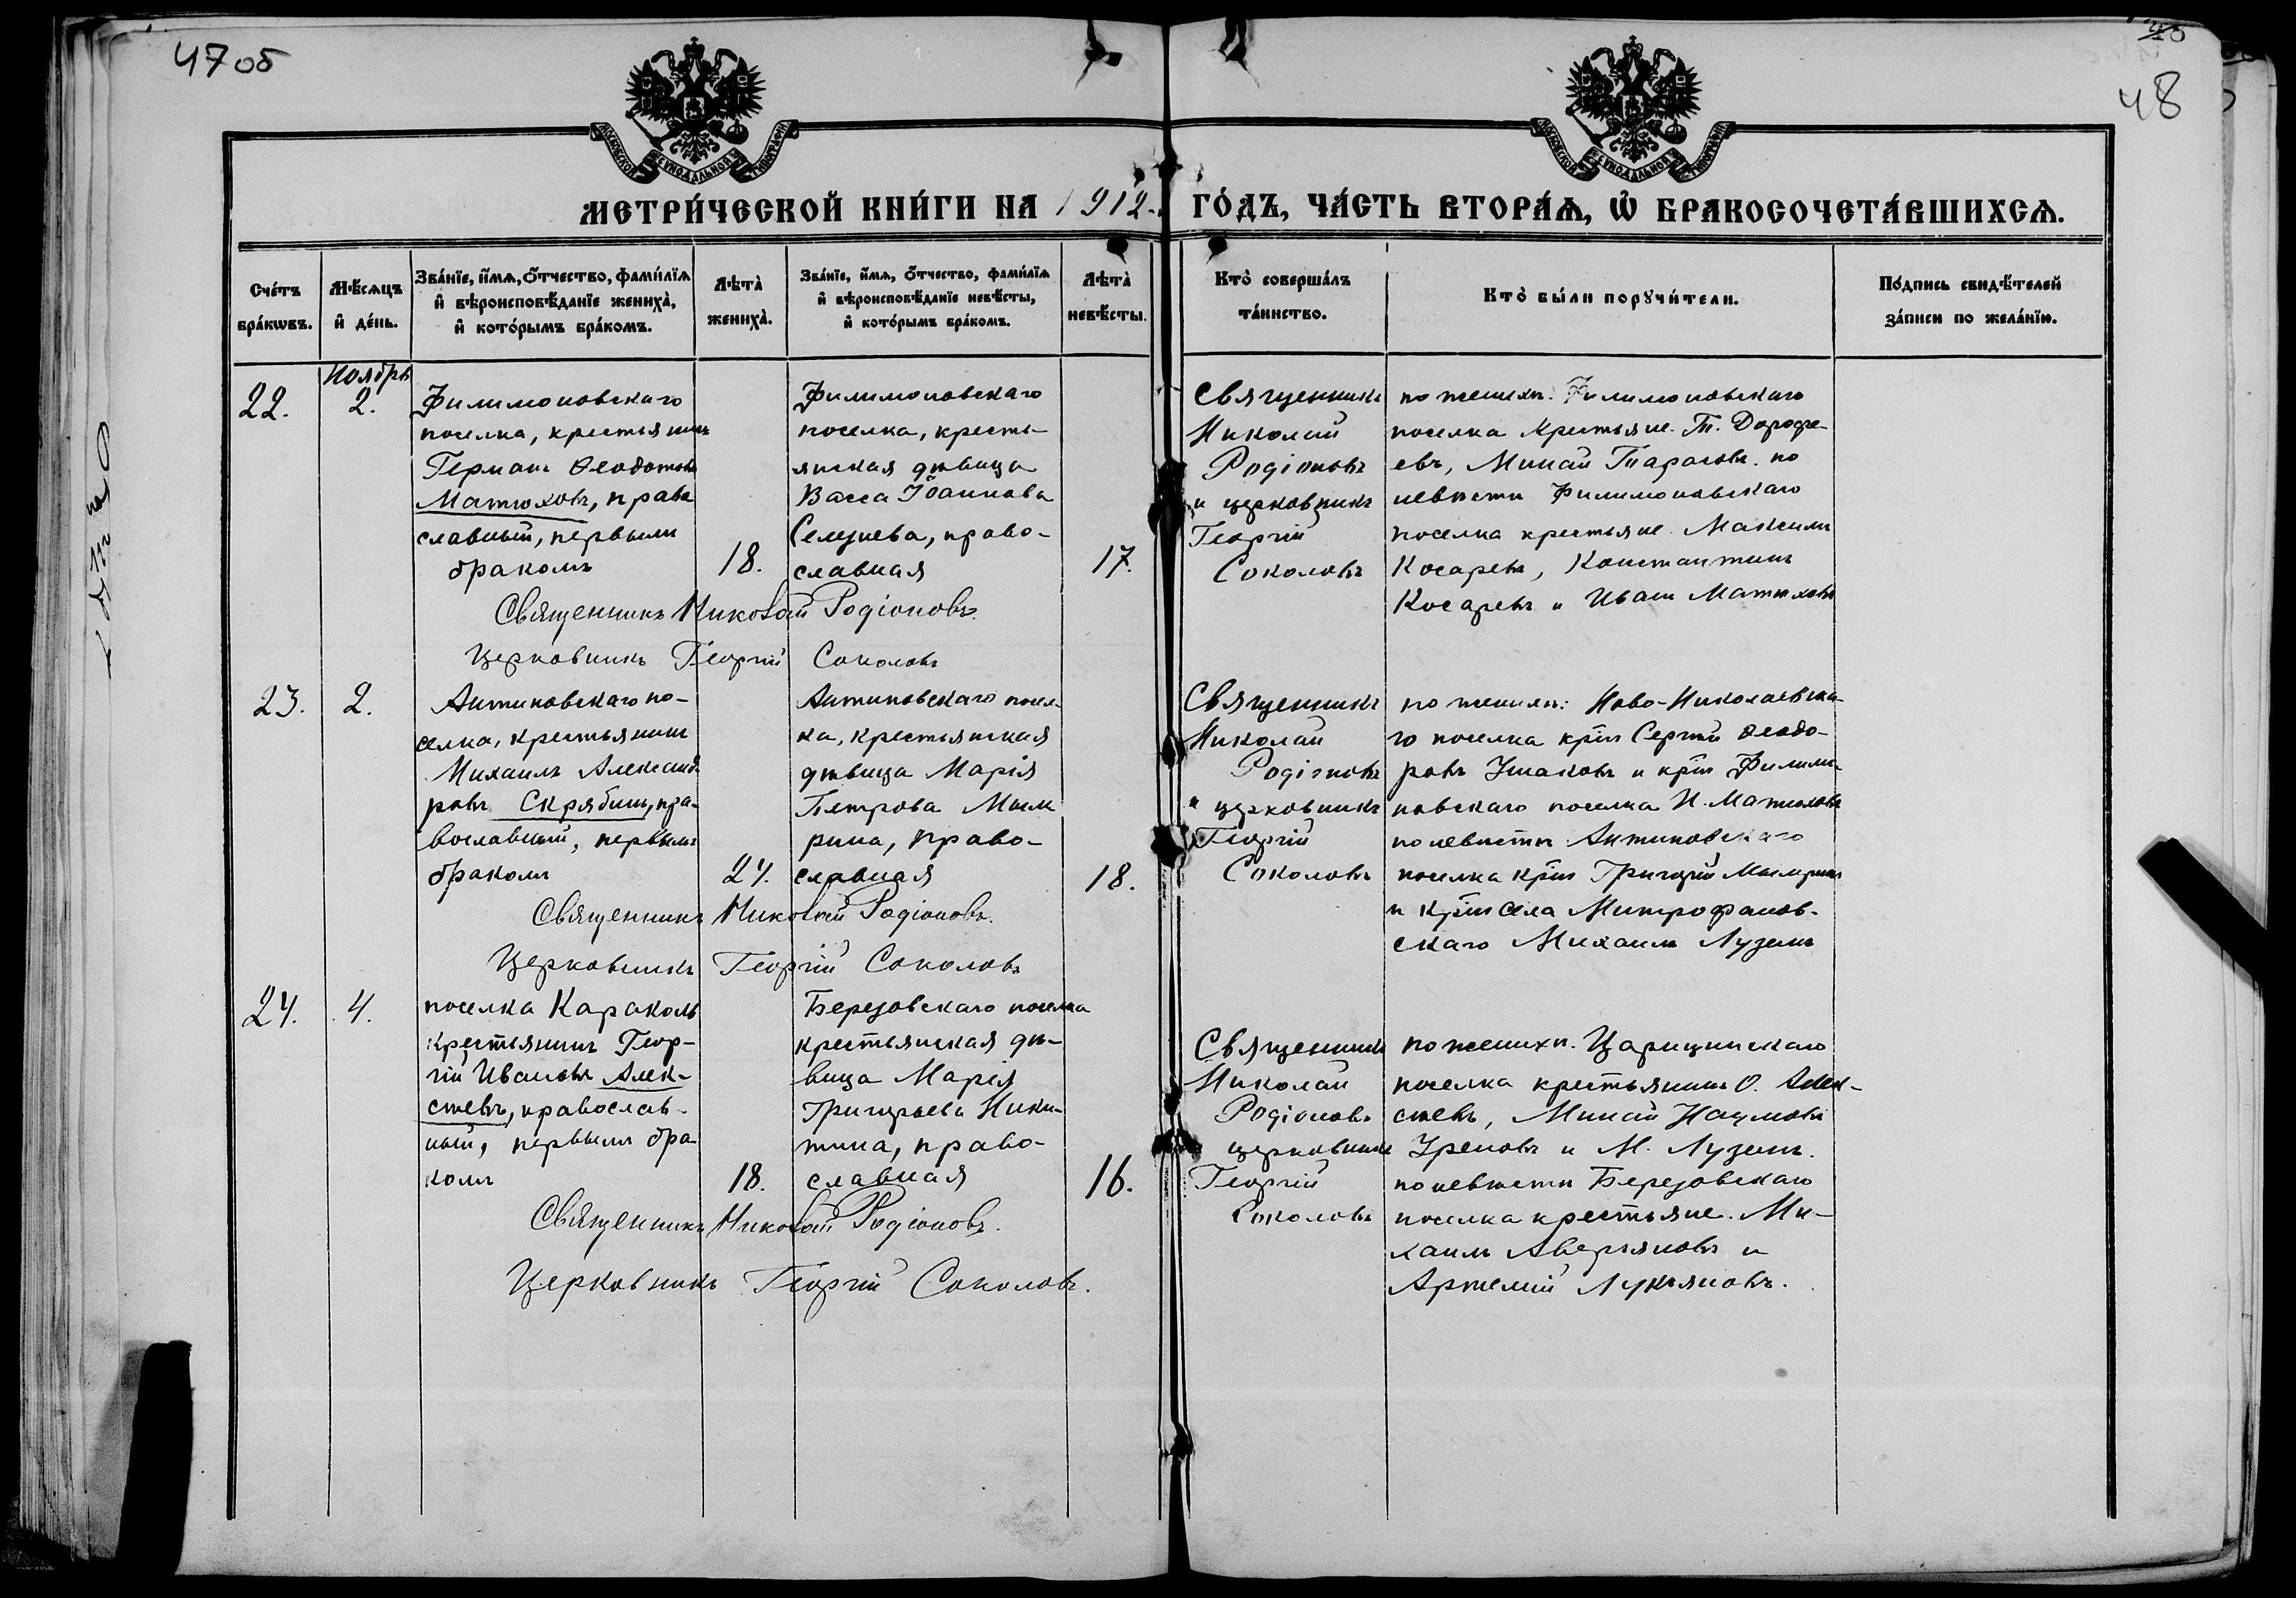 47 об
48
МОСКОВСКОЙ СѴНОДАЛЬНОЙ ТИПОГРАФІИ
МОСКОВСКОЙ СѴНОДАЛЬНОЙ ТИПОГРАФІИ
МЕТРИ́ЧЕСКОЙ КНИ́ГИ НА 1912 ГО́ДЪ, ЧА́СТЬ ВТОРА́Ѧ, Ѡ҆ БРАКОСОЧЕТА́ВШИХСѦ.
Сче́тъ бра́кѡвъ.
Мѣ́сѧцъ и҆ де́нь.
Зва́нїе, и҆́мѧ, ѻ҆́тчество, фами́лїѧ
и҆ вѣроисповѣ́данїе жениха̀,
и҆ кото́рымъ бра́комъ.
Лѣта̀ жениха̀.
Зва́нїе, и҆́мѧ, ѻ҆́тчество, фами́лїѧ
и҆ вѣроисповѣ́данїе невѣ́сты,
и҆ кото́рымъ бра́комъ.
Лѣта̀ невѣ́сты.
Кто̀ соверша́лъ та́инство.
Кто̀ бы́ли порꙋчи́тели.
По́дпись свидѣ́телей за́писи по жела́нїю.
Ноябрь
22.
2.
Филимоновскаго
поселка, крестьянинъ
Германъ Ѳеодотовъ
Матюховъ, право
славный, первымъ
бракомъ
18.
Филимоновскаго
поселка, кресть-
янская дѣвица
Васса Іоаннова
Селезнева, право-
славная
17.
Священникъ
Николай
Родіоновъ
и церковникъ
Георгій
Соколовъ
по женихѣ: Филимоновскаго
поселка крестьяне. Т. Дорофе-
евъ, Минай Тарасовъ. по
невѣстѣ Филимоновскаго
поселка крестьяне Максимъ
Косаревъ, Константинъ
Косаревъ и Иванъ Матюховъ
Священникъ Николай Родіоновъ.
Церковникъ Георгій Соколовъ
23.
2.
Антиповскаго по-
селка, крестьянинъ
Михаилъ Александ-
ровъ Скрябинъ, пра-
вославный, первымъ
бракомъ
24.
Антиповскаго посел-
ка, крестьянская
дѣвица Марія
Петрова Мым
рина, право-
славная
18.
Священникъ
Николай
Родіоновъ
и церковникъ
Георгій
Соколовъ
по женихѣ: Ново-Николаевска-
го поселка крѣ Сергѣй Ѳеодо-
ровъ Ушаковъ и крѣ Филимо-
новскаго поселка И. Матюховъ
по невѣстѣ Антиповскаго
поселка крѣ Григорій Мымринъ
и крѣ села Митрофанов-
скаго Михаилъ Лузинъ
Священникъ Николай Родіоновъ.
Церковникъ Георгій Соколовъ
24.
4.
поселка Караколь
крестьянинъ Геор-
гій Ивановъ Алек-
сѣевъ, православ-
ный, первымъ бра
комъ
18.
Березовскаго поселка
крестьянская дѣ-
вица Марія
Григорьева Ники-
тина, право-
славная
16.
Священникъ
Николай
Родіоновъ
церковникъ
Георгій
Соколовъ
по женихѣ. Царицинскаго
поселка крестьянинъ О. Алек-
сѣевъ, Минай Наумовъ
Уреновъ и М. Лузинъ.
по невѣстѣ Березовскаго
поселка крестьяне. Ми-
хаилъ Аверьяновъ и
Артемій Лукьяновъ.
Священникъ Николай Родіоновъ.
Церковникъ Георгій Соколовъ.